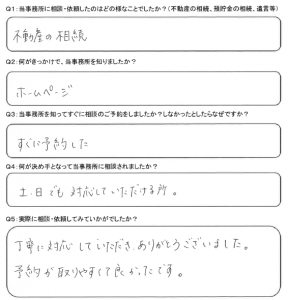 Q1：当事務所に相談・依頼したのはどの様なことでしたか？（不動産の相続、預貯金の相続、遺言等）
不動産の相続
Q2：何がきっかけで、当事務所を知りましたか？
ホームページ
Q3：当事務所を知ってすぐに相談のご予約をしましたか？しなかったとしたらなぜですか？
すぐに予約した
Q4：何が決め手となって当事務所に相談されましたか？
土、日でも対応していただける所。
Q5：実際に相談・依頼してみていかがでしたか？
丁寧に対応していただき、ありがとうございました。
予約が取りやすくて良かったです。